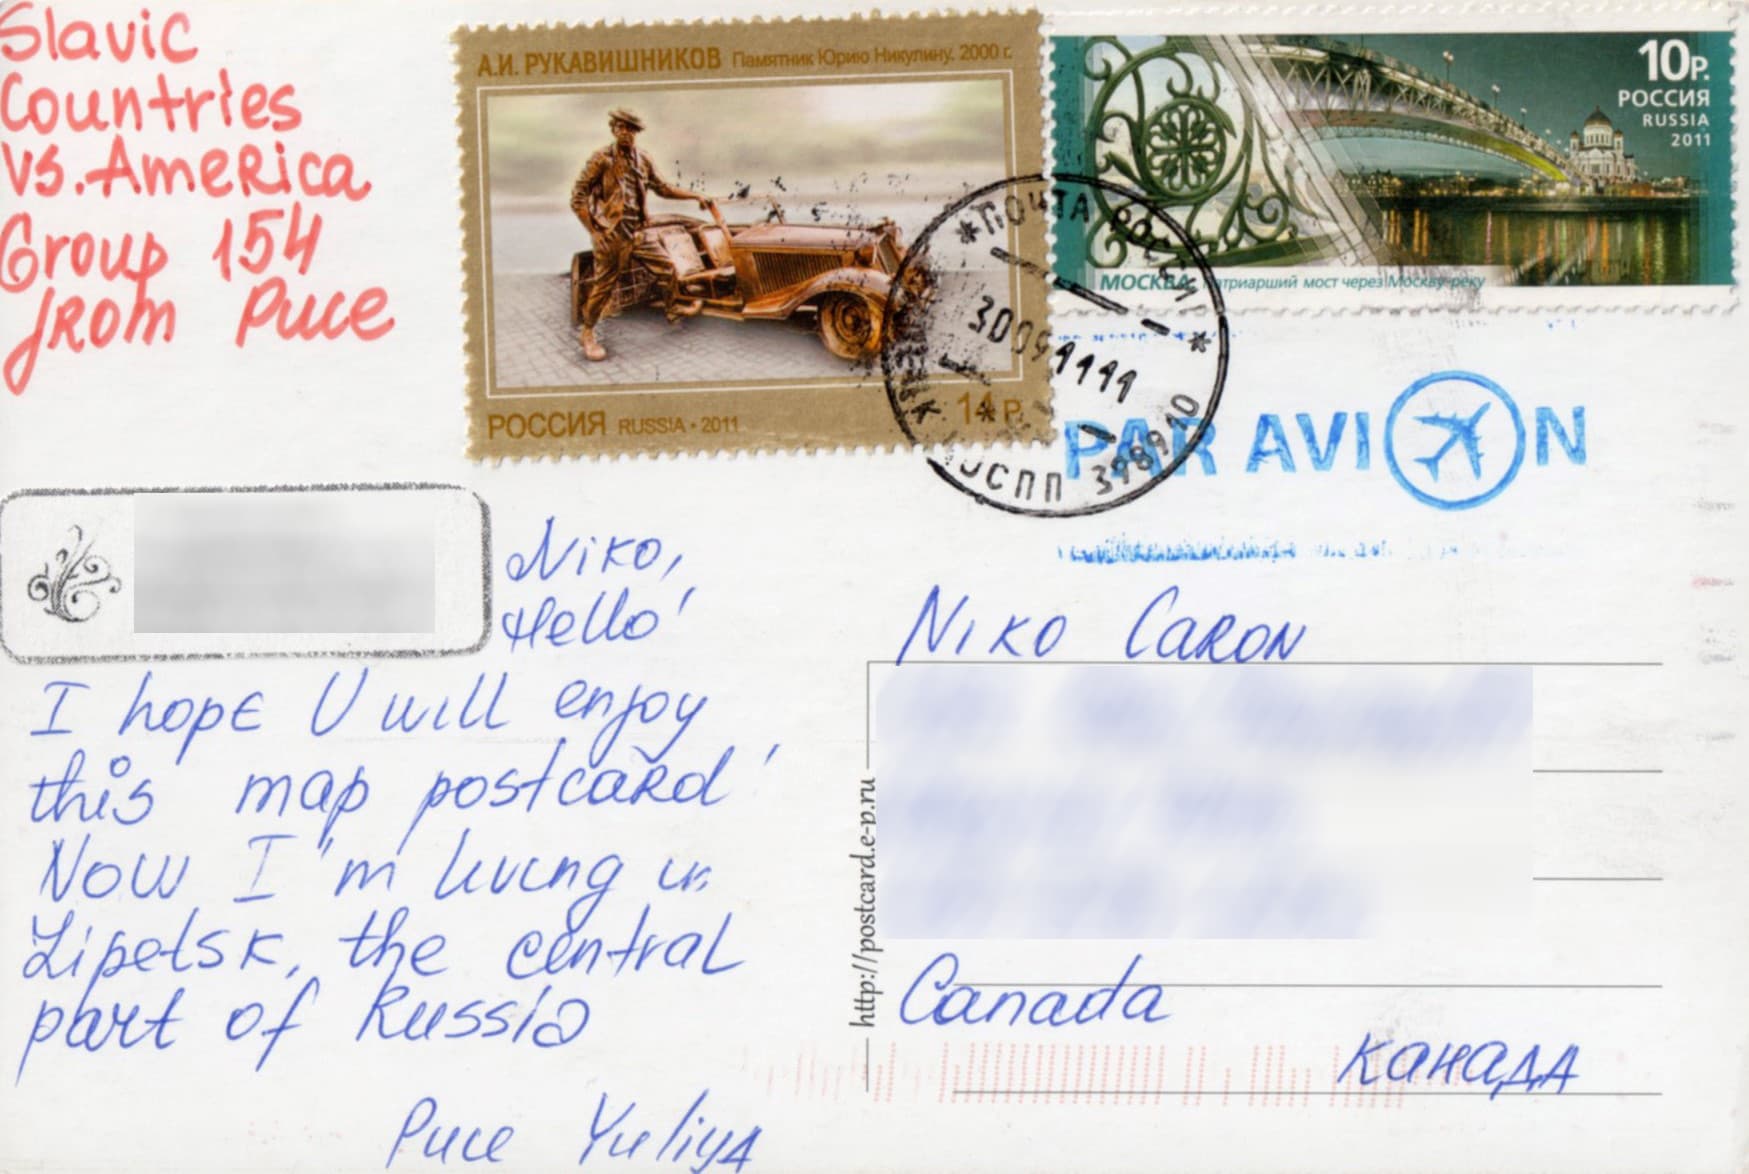 Slavic
Countries
vs. America
Group 154
from Puce
А.И. РУКАВИШНИКОВ Памятник Юрию Никулину. 2000 г.
РОССИЯ RUSSIA • 2011
14 Р.
10Р.
РОССИЯ
RUSSIA
2011
МОСКВА. Патриарший мост через Москву-реку
*ПОЧТА РОССИИ*
3009111111
ОСПП 398910
PAR AVION
Niko,
Hello!
I hope U will enjoy
this map postcard!
Now I'm living in
Lipetsk, the central
part of Russia
Puce Yuliya
http://postcard.e-p.ru
Niko Caron
Canada
Канада